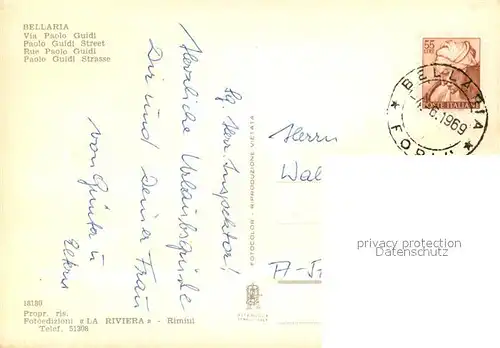 BELLARIA
Via Paolo Guidi
Paolo Guidi Street
Rue Paolo Guidi
Paolo Guidi Strasse
Sg. Herr Inspektor!
Herzliche Urlaubsgrüße
Dir und Deiner Frau
von Günter u
FOTOCOLOR - RIPRODUZIONE VIETATA
Herrn
Wal
A-
55
LIRE
POSTE ITALIANE
BELLARIA
6.1969
FORLI
privacy protection
www.oldthing.com
18180
Propr. ris.
Fotoedizioni «LA RIVIERA» - Rimini
Telef. 51308